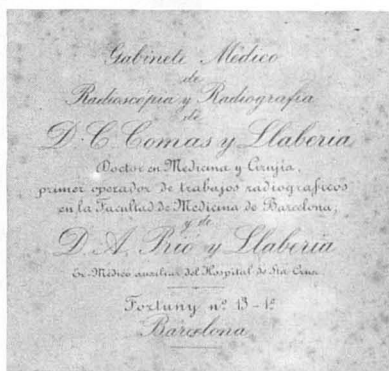 Gabinete Médico
de
Radioscópia y Radiografía
de
D. C. Comas y Llaberia
Doctor en Medicina y Cirujía,
primer operador de trabajos radiográficos
en la Facultad de Medicina de Barcelona;
y de
D. A. Prió y Llaberia
Ex-Médico auxiliar del Hospital de Sta Cruz.
Fortuny nº 13-1º
Barcelona